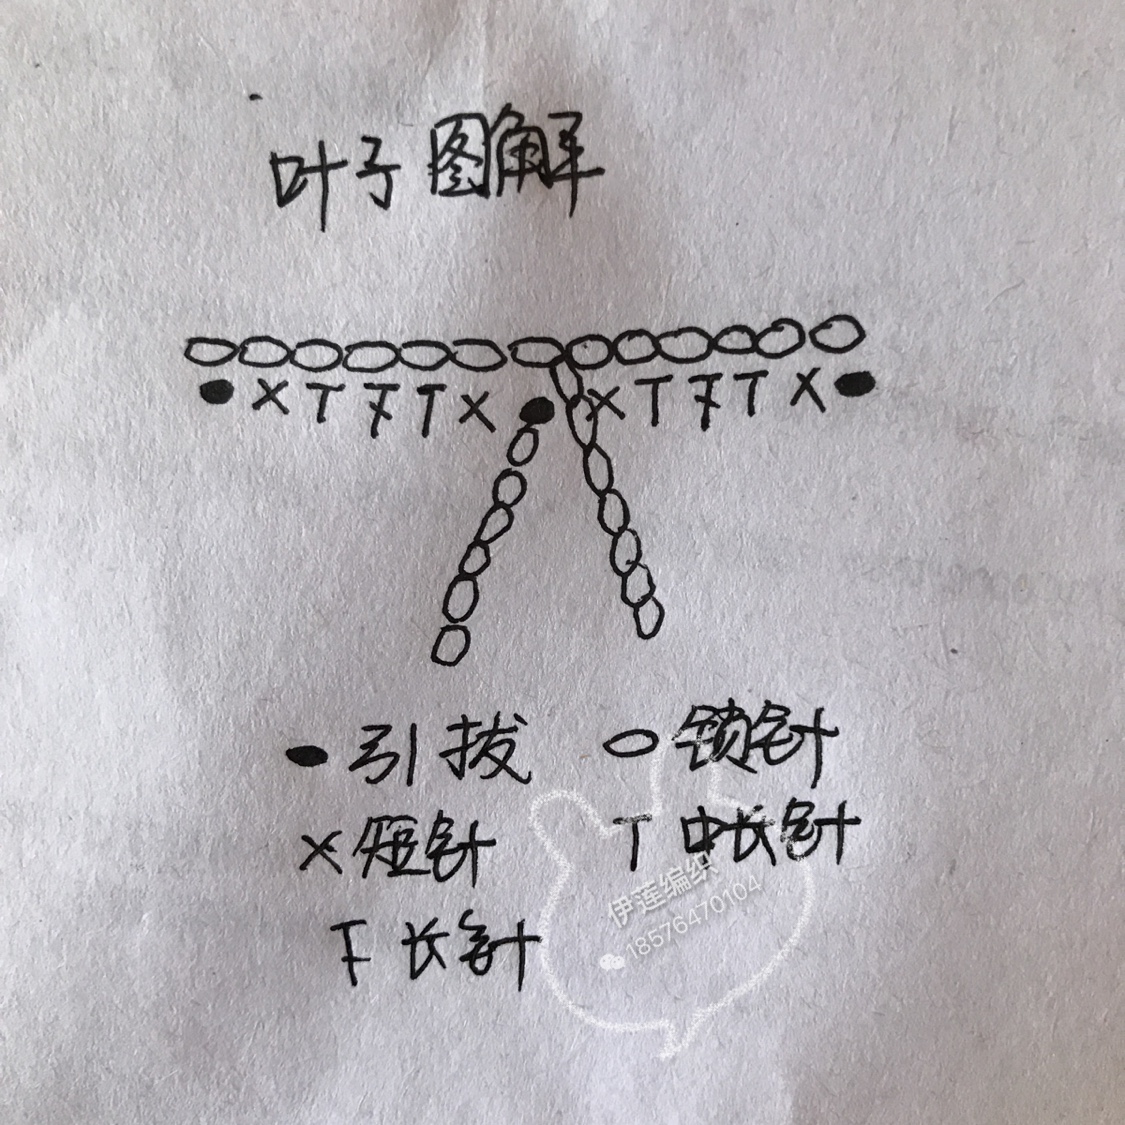 叶子图解
● X T Ŧ T X ● X T Ŧ T X ●
● 引拔 ○ 锁针
X 短针 T 中长针
Ŧ 长针
伊莲编织
18576470104